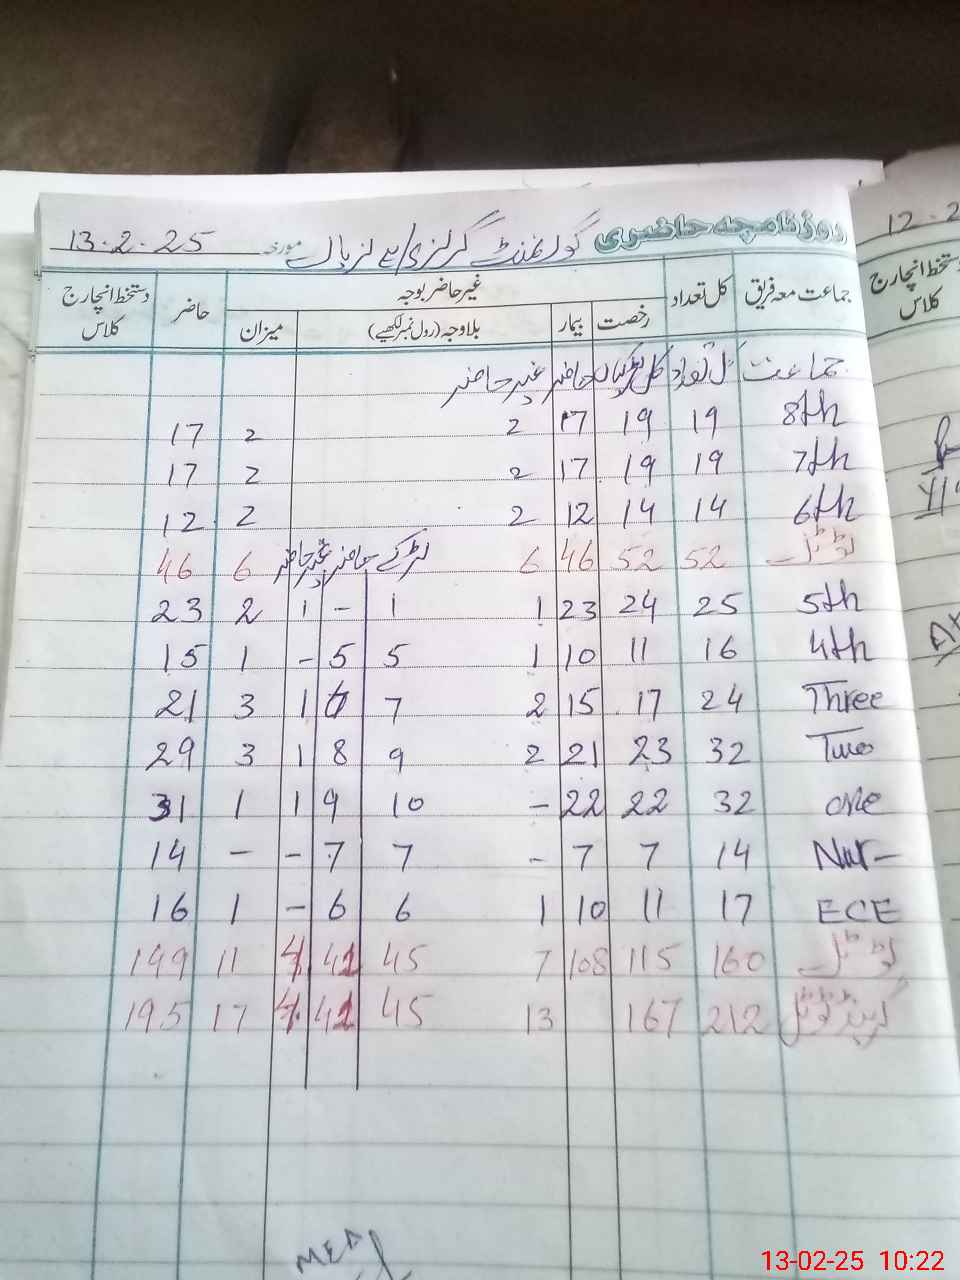 روزنامچہ حاضری گورنمنٹ گرلز مورخہ 13-2-25
جماعت معہ فریق کل تعداد غیر حاضر بوجہ حاضر دستخط انچارج کلاس
رخصت بیمار بلاوجہ (رول نمبر لکھیے) میزان
جماعت کل تعداد کل لڑکیاں حاضر غیر حاضر
8th 19 19 17 2 2 17
7th 19 19 17 2 2 17
6th 14 14 12 2 2 12
ٹوٹل 52 52 46 6 لڑکے حاضر غیر حاضر 6 46
5th 25 24 23 1 1 - 1 2 23
4th 16 11 10 1 5 5 - 1 15
Three 24 17 15 2 7 1 3 21
Two 32 23 21 2 9 8 1 3 29
one 32 22 22 - 10 9 1 1 31
Nur- 14 7 7 - 7 7 - - 14
ECE 17 11 10 1 6 6 - 1 16
ٹوٹل 160 115 108 7 45 41 4 11 149
گرینڈ ٹوٹل 212 167 13 45 41 4 17 195
12-2
دستخط انچارج
کلاس
13-02-25 10:22